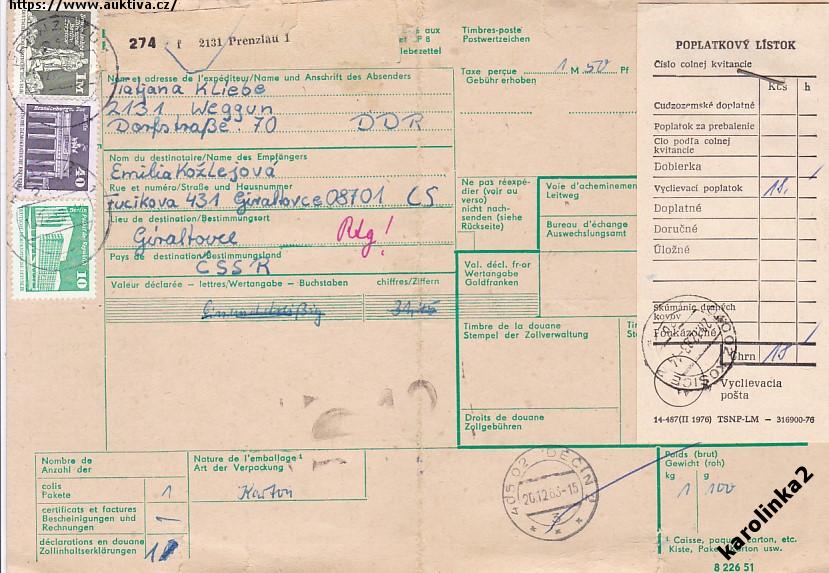 https://www.auktiva.cz/
274 f 2131 Prenzlau 1
aux
et CP 8
lebezettel
Timbres-poste
Postwertzeichen
Taxe perçue 1 M 50 Pf
Gebühr erhoben
Nom et adresse de l'expéditeur/Name und Anschrift des Absenders
Tatjana Kliebe
2131 Weggun
Dorfstraße 70 DDR
Nom du destinataire/Name des Empfängers
Emilia Kožlejová
Rue et numéro/Straße und Hausnummer
Fucikova 431 Giraltovce 08701 CS
Lieu de destination/Bestimmungsort
Giraltovce
Rtg!
Pays de destination/Bestimmungsland
ČSSR
Valeur déclarée — lettres/Wertangabe - Buchstaben chiffres/Ziffern
Ne pas réexpé-
dier (voir au
verso)
nicht nach-
senden (siehe
Rückseite)
Voie d'acheminement
Leitweg
Bureau d'échange
Auswechslungsamt
Val. décl. fr-or
Wertangabe
Goldfranken
Timbre de la douane
Stempel der Zollverwaltung
Droits de douane
Zollgebühren
Nombre de
Anzahl der
colis
Pakete 1
certificats et factures
Bescheinigungen und
Rechnungen
déclarations en douane
Zollinhaltserklärungen 1
Nature de l'emballage¹
Art der Verpackung
Karton
40502 DĚČÍN
20.12.83-15
3
Poids (brut)
Gewicht (roh)
kg g
1 100
¹ Caisse, paquet, carton, etc.
Kiste, Paket, Karton usw.
8 226 51
POPLATKOVÝ LÍSTOK
Číslo colnej kvitancie
Kčs h
Cudzozemské doplatné
Poplatok za prebalenie
Clo podľa colnej
kvitancie
Dobierka
Vyclievací poplatok 18,
Doplatné
Doručné
Úložné
Skúmanie drahých
kovov
Poukázočné
Úhrn 18
KOŠICE
Vyclievacia
pošta
14-487(II 1976) TSNP-LM — 316900-76
1M
40
10
karolinka2